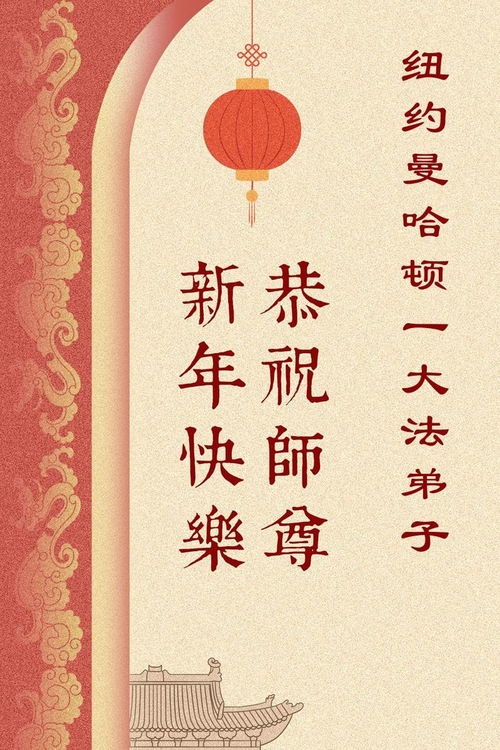 纽约曼哈顿一大法弟子
恭祝師尊
新年快樂